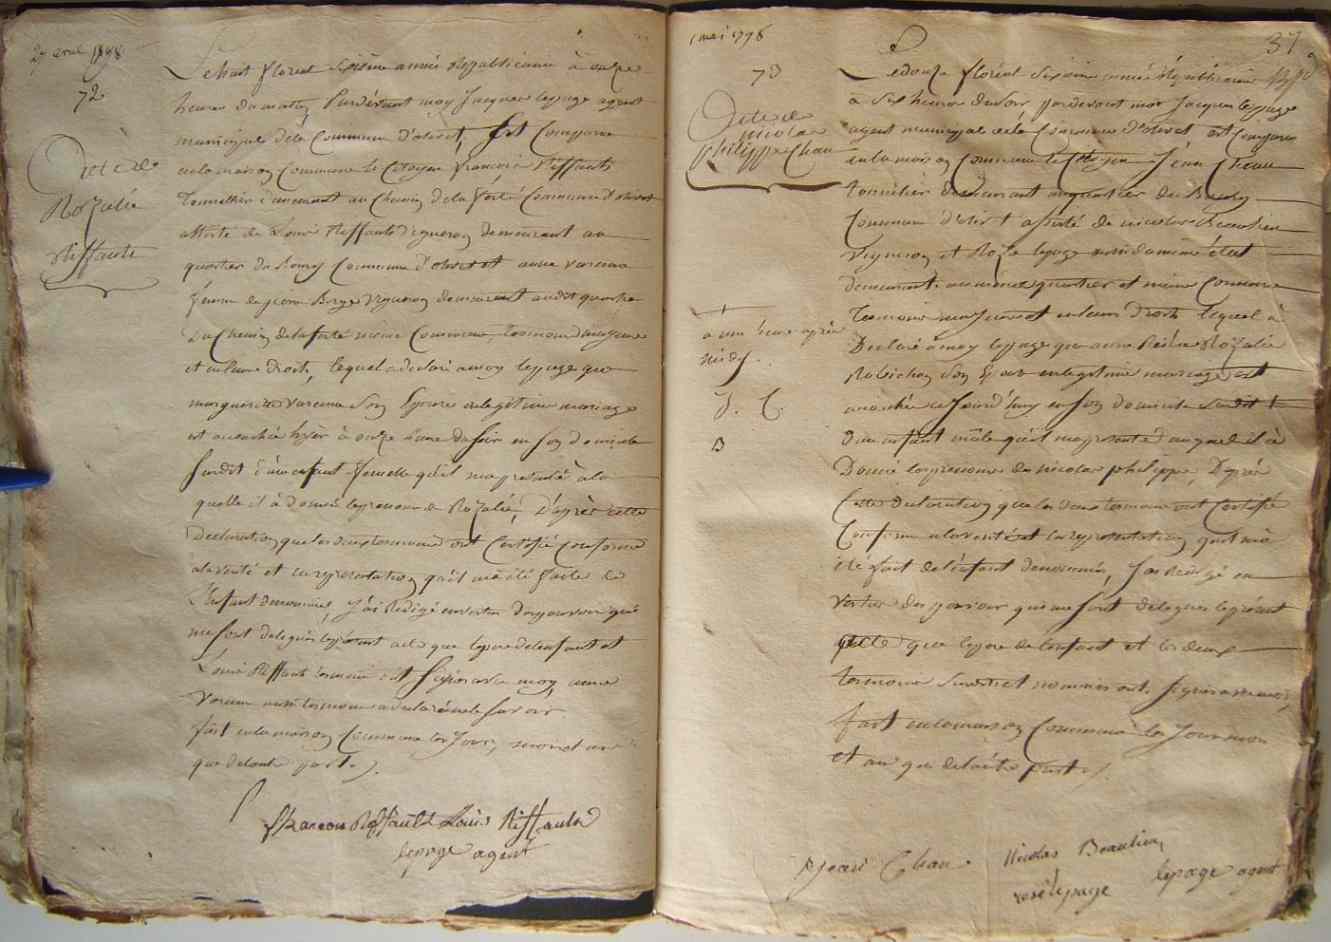 27 avril 1798
72
Acte de
Rozalie
Riffault
Le huit floréal sixième année Républicaine à onze
heures du matin Pardevant moy Jacques lepage agent
municipale de la Commune d'olivet, Est Comparu
en la maison Commune le Citoyen françois Riffault
Tonnellier demeurant au Chemin de la ferté Commune d'olivet
assisté de Louis Riffault vigneron demeurant au
quartier du bourg Commune d'olivet et anne varenne
femme de pierre vigneron demeurant audit quartier
du Chemin de la ferté même Commune, temoins majeurs
et en leurs Droits, lequel a déclaré a moy lepage que
marguerite varenne son Epouse en legitime mariage
est accouchée hyer à onze heure du soir en son domicile
susdit d'un enfant femelle qu'il ma presenté à la
quelle il à donné le prenom de Rozalie, D'après cette
Declaration que les deux temoins ont Certifié conforme
a la verité et la représentation qu'il m'a été faite de
L'enfant denommé, J'ai Rédigé en vertu des pouvoirs qui
me sont delegués le présent acte que le pere de l'enfant et
Louis Riffault temoin ont signés avec moy, anne
varenne autre temoin a declaré ne le savoir
fait en la maison Commune les Jour, mois et an
que de l'autre part.
françois Riffault Louis Riffault
lepage agent
1 mai 1798
37
73
Acte de
nicolas
philippe Chau
à une heure après
midy.
J. C.
B
Le douze floréal sixième année républicaine
à six heures du soir pardevant moy Jacques lepage
agent municipal de la Commune d'olivet est Comparu
en la maison Commune le Citoyen Jean Chau
tonnelier demeurant au quartier du Bourg
Commune d'olivet assisté de nicolas Beaulieu
vigneron et Roze lepage
demeurant au même quartier et même Commune
temoins majeurs et en leurs Droits lequel à
Déclaré à moy lepage que anne Rozalie
Robichon son Epouse en legitime mariage est
accouchée ce Jourd'huy en son domicile susdit
d'un enfant mâle qu'il ma presenté auquel il à
Donné les prenoms de nicolas philippe, D'après
Cette declaration que les deux temoins ont Certifié
Conforme a la verité et la representation qui m'a
été fait de l'enfant denommé, J'ai Rédigé en
vertu des pouvoirs qui me sont delegués le présent
acte que le pere de l'enfant et les deux
temoins susdit et nommés ont signés avec moi,
fait en la maison Commune les Jour mois
et an que de l'autre part.
Jean Chau Nicolas Beaulieu
rose lepage lepage agent